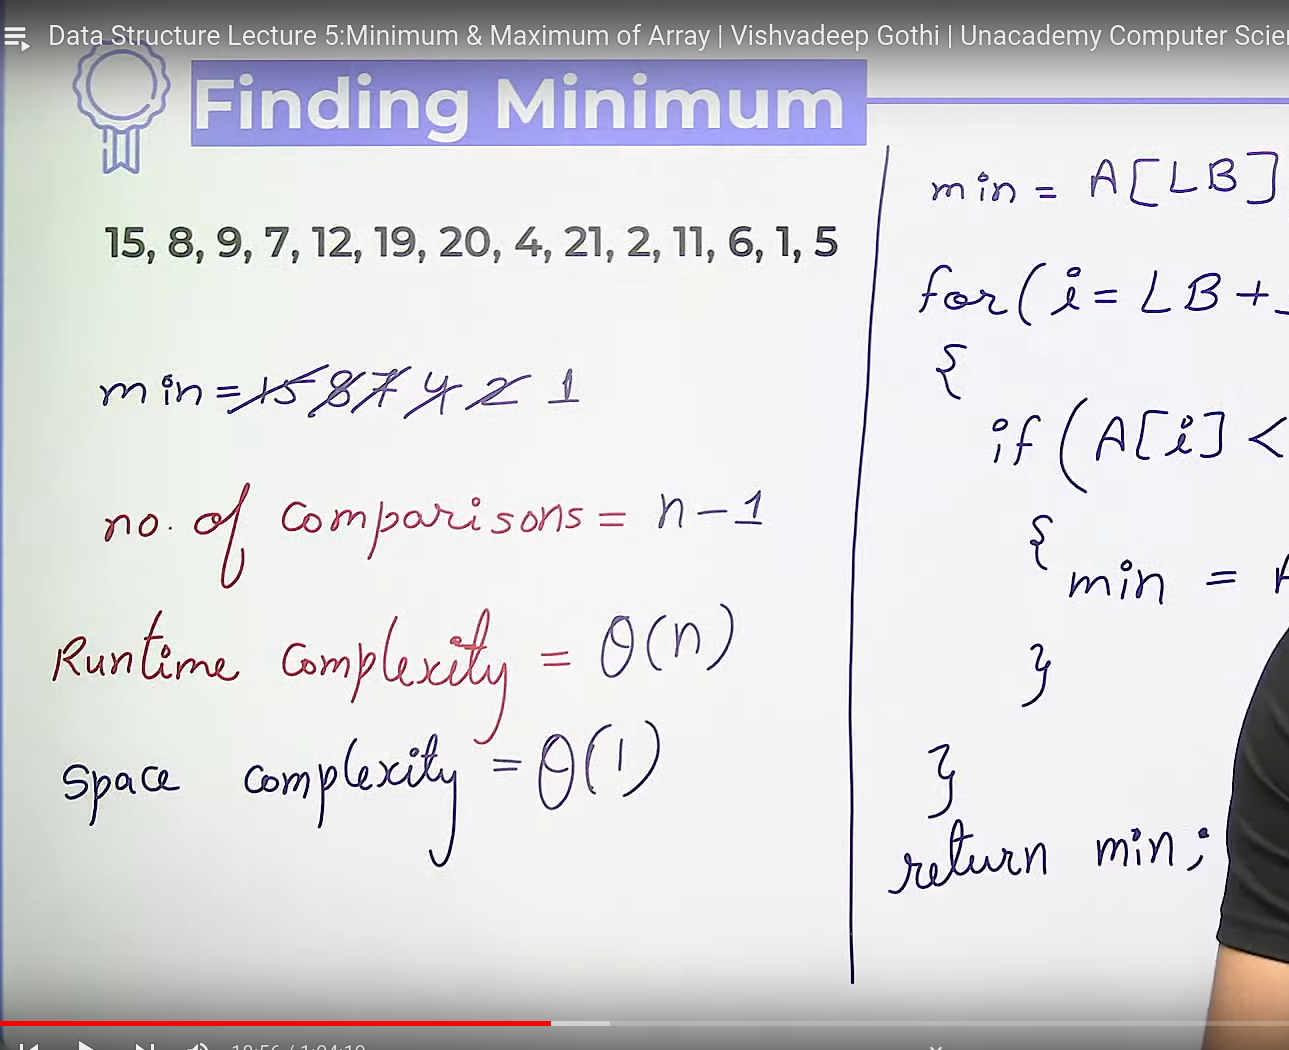 Data Structure Lecture 5:Minimum & Maximum of Array | Vishvadeep Gothi | Unacademy Computer Scie
Finding Minimum
15, 8, 9, 7, 12, 19, 20, 4, 21, 2, 11, 6, 1, 5
min = 15 8 7 4 2 1
no. of comparisons = n-1
Runtime complexity = θ(n)
Space complexity = θ(1)
min = A[LB]
for(i = LB +
{
if (A[i] <
{
min =
}
}
return min;